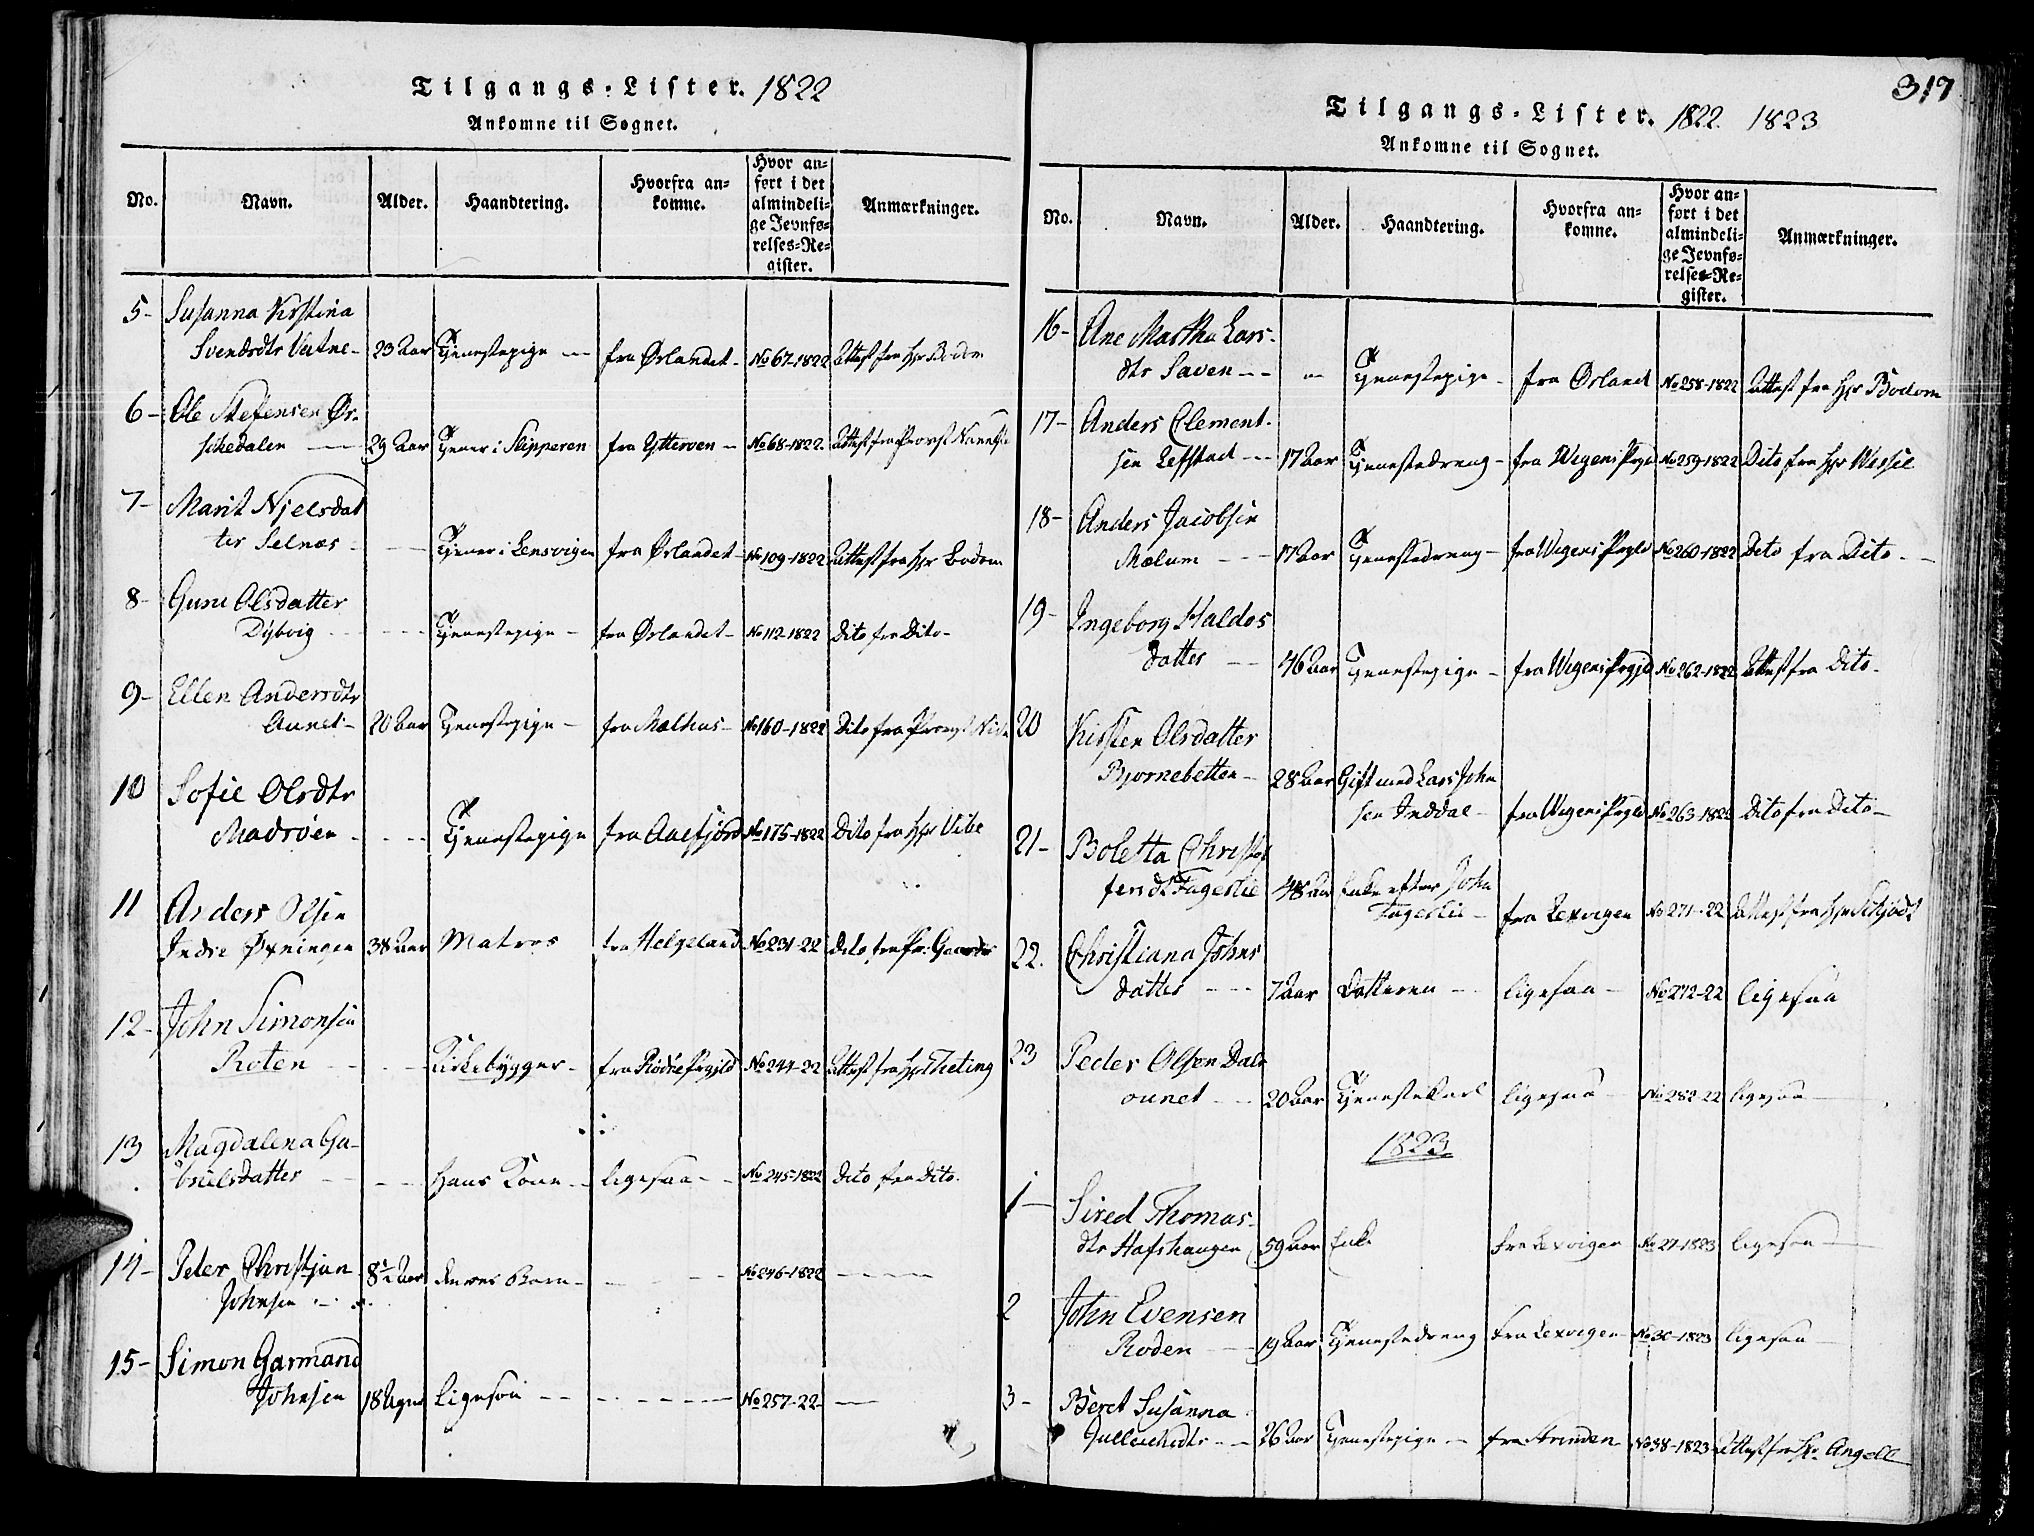 Tilgangs-Lister. 1822
Ankomne til Sognet.
No. Navn. Alder. Haandtering. Hvorfra an-komne. Hvor an-ført i det almindeli-ge Jevnfø-relses-Re-gister. Anmærkninger.
5- Susanna Kirstina
Svendsdtr Veitne- 23 Aar Tjenestepige -- fra Ørlandet- No 67-1822 Attest fra Hr Bodom
6- Ole Stefensen Ør-
sikedalen -- 29 Aar Tjener i Skipperen fra Ytterøen - No 68-1822. Attest fra Provst
7- Marit Njelsdat
ter Selnæs - -- Tjener i Lensvigen fra Ørlandet- No 109-1822 Attest fra Hr Bodom
8- Guru Olsdatter
Dybvig - - - -- Tjenestepige - fra Ørlandet- No 112-1822 Dito fra Dito-
9- Ellen Andersdtr
Aunet- 20 Aar Tjenestepige - fra Melhus- No 160-1822 Dito fra Provst
10 Sofie Olsdtr
Madsøen - - -- Tjenestepige fra Aaefjord No 175-1822 Dito fra Hr Vibe
11 Anders Olsen
Indre Øxningen 38 Aar Matros fra Helgeland No 231-22 Dito fra Pr:
12- John Simonsen
Roten - - -- Kirkebygger- fra Rödöe Prgjld No 244-22 Attest fra Hr
13 Magdalena Ga-
brielsdatter - -- Hans Kone - ligesaa - - No 245-1822 Dito fra Dito.
14- Peter Christjan 8½ Aar deres Barn - - -- No 246-1822 ----
Johnsen - - -
15- Simon Garmand
Johnsen 18 Uger Ligesaa -- - - ---- No 257-22- --
317
Tilgangs-Lister. 1822. 1823
Ankomne til Sognet.
No. Navn. Alder. Haandtering. Hvorfra an-komne. Hvor an-ført i det almindeli-ge Jevnfø-relses-Re-gister. Anmærkninger.
16- Ane Martha Lars-
dtr Saven -- -- Tjenestepige - fra Ørland No 258-1822 Attest fra Hr Bodom
17- Anders Clement-
sen Leffstad -- 17 Aar Tjenestedreng - fra Wigens Prgld No 259-1822 Dito fra Hr Wessel
18- Anders Jacobsen
Mælum - - 17 Aar Tjenestedreng - fra Wigens Prgld No 260-1822 Dito fra Dito - -
19- Ingeborg Haldos
datter -- 46 Aar Tjenestepige - fra Wigens Prgjld No 262-1822 Attest fra Dito-
20 Kirsten Olsdatter
Bjørnebetten- 28 Aar Gift med Lars John
sen Inddal- fra Wigens Prgld No 263-1822 Dito fra Dito-
21- Boletta Christof
fersdtr Fagerlie 48 Aar Enke efter John
Fagerlie- fra Lexvigen No 271-22 Attest fra Hr Schjödt
22. Christiana Johns
datter --- 7 Aar Datteren -- ligesaa - No 272-22 ligesaa
23 Peder Olsen Dals
ounet -- 20 Aar Tjenestekarl ligesaa - No 282-22 ligesaa -
1823
1- Sired Thomas-
dtr Hafshaugen 59 Aar Enke fra Lexvigen No 27-1823 ligesaa -
2 John Evensen
Roden -- 19 Aar Tjenestedreng fra Lexvigen- No 30-1823 ligesaa -
3- Beret Susanna
-- 26 Aar Tjenestepige - fra Strinden- No 38-1823 Attest fra Hr. Angell